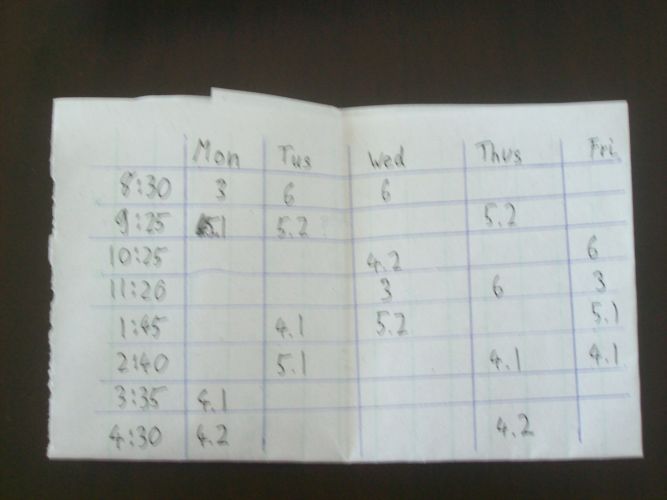 Mon Tus Wed Thus Fri
8:30 3 6 6
9:25 5.1 5.2 5.2
10:25 4.2 6
11:20 3 6 3
1:45 4.1 5.2 5.1
2:40 5.1 4.1 4.1
3:35 4.1
4:30 4.2 4.2